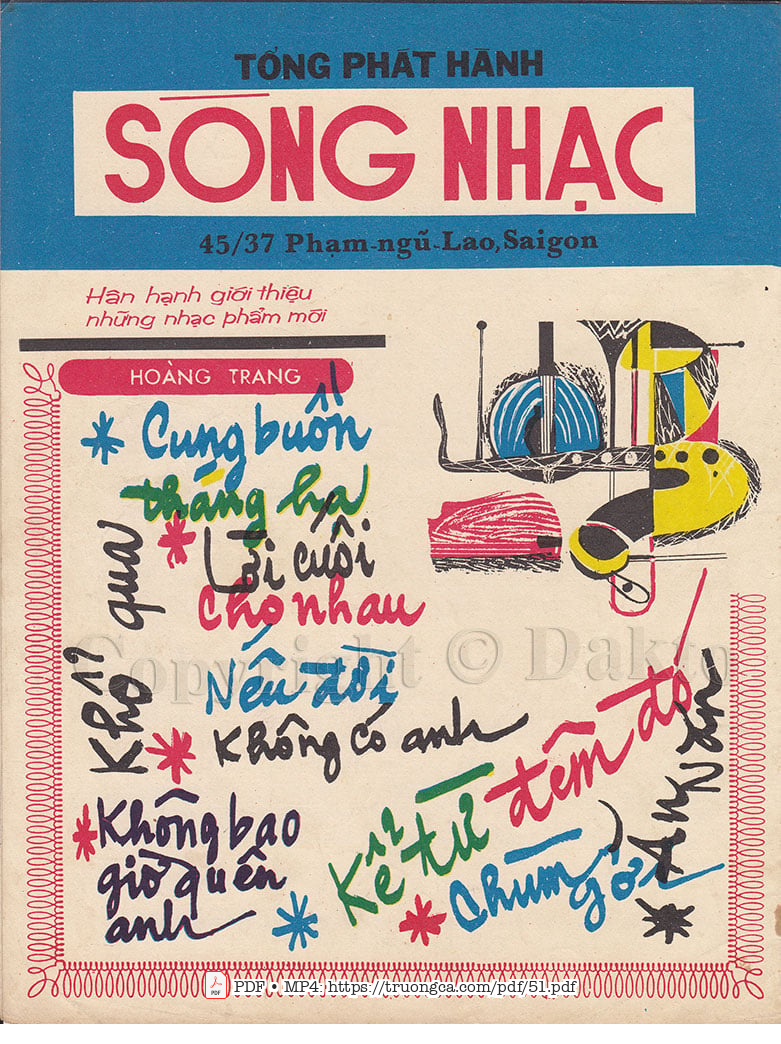 TỔNG PHÁT HÀNH
SÓNG NHẠC
45/37 Phạm-ngũ-Lao, Saigon
Hân hạnh giới thiệu
những nhạc phẩm mới
HOÀNG TRANG
Cung buồn
tháng hạ
Lời cuối
cho nhau
Khổ qua
Nếu đời
Không có anh
Không bao
giờ quên
anh
Kể từ đêm đó
Chùm gởi
Ăn Năn
Copyright © Dakto
PDF • MP4: https://truongca.com/pdf/51.pdf